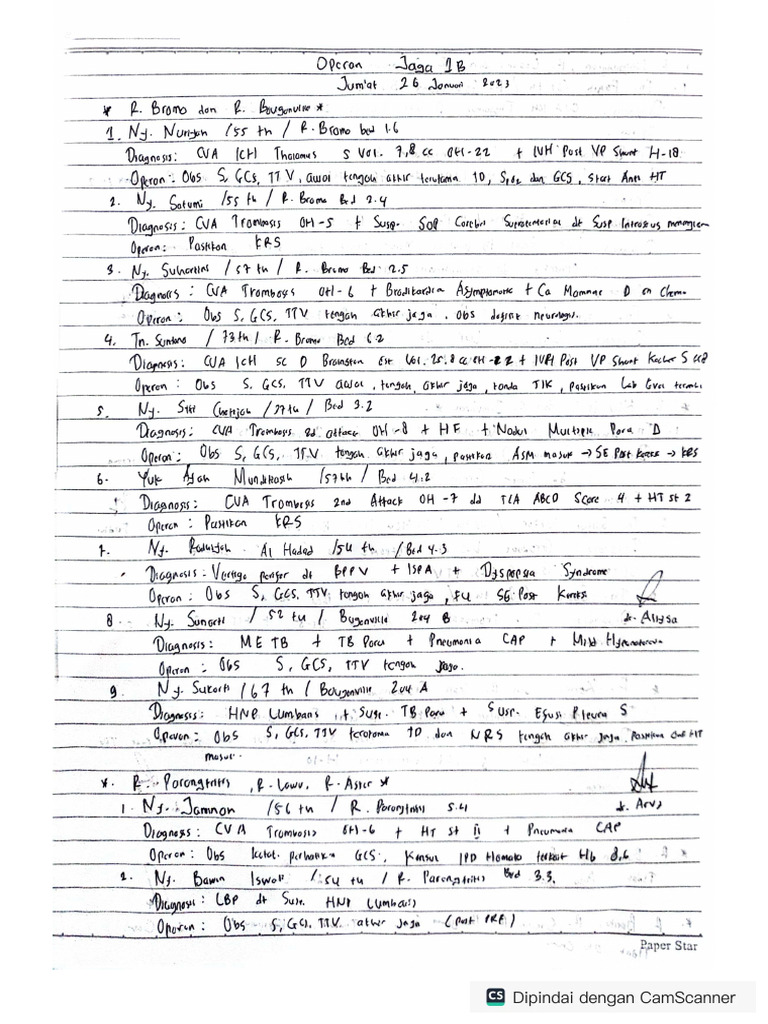 Operan Jaga 1B
Jum'at 26 Januari 2023
* R. Bromo dan R. Bougenville *
1. Ny. Nuriyah /55 th / R. Bromo bed 1.6
Diagnosis: CVA ICH Thalamus S Vol. 7,8 cc OH-22 + IVH Post VP Shunt H-18
Operan: Obs S, GCS, TTV, awal tengah akhir terutama TD, SpO2 dan GCS, start Anti HT
2. Ny. Satumi /55 th / R. Bromo Bed 2.4
Diagnosis: CVA Trombosis OH-5 + Susp. SOP Cerebri Supratentorial dt Susp
Operan: Pastikan KRS
3. Ny. Suhartini /57 th / R. Bromo Bed 2.5
Diagnosis: CVA Trombosis OH-6 + Bradikardia Asymptomatic + Ca Mammae D on Chemo
Operan: Obs S, GCS, TTV tengah akhir jaga. obs defisit neurologis.
4. Tn. Suntono /73 th / R. Bromo Bed 6.2
Diagnosis: CVA ICH SC D Brainstem Est Vol. 25.8 cc OH-22 + IVH Post VP Shunt S
Operan: Obs S, GCS, TTV awal, tengah, akhir jaga, tanda TIK, pastikan Lab
5. Ny. Siti /37 th / Bed 3.2
Diagnosis: CVA Trombosis 2d attack OH-8 + HF + Nodul Multiple Paru D
Operan: Obs S, GCS, TTV tengah akhir jaga, pastikan ASM masuk → SE Post Koreksi → KRS
6. Yuk Ayah /57 th / Bed 4.2
Diagnosis: CVA Trombosis 2nd Attack OH-7 dd TIA ABCD Score 4 + HT st 2
Operan: Pastikan KRS
7. Ny. Al Hadad /54 th / Bed 4.3
Diagnosis: Vertigo perifer dt BPPV + ISPA + Dyspepsia Syndrome
Operan: Obs S, GCS, TTV tengah akhir jaga, FU SE Post Koreksi
8 Ny. Sunarti / 52 th / Bougenville 204 B
dr. Allysa
Diagnosis: METB + TB Paru + Pneumonia CAP + Mild
Operan: Obs S, GCS, TTV tengah jaga.
9. Ny. Sukarti / 67 th / Bougenville 204 A
Diagnosis: HNP Lumbalis + Susp. TB Paru + Susp. Efusi Pleura S
Operan: Obs S, GCS, TTV terutama TD dan NRS tengah akhir jaga. Pastikan
masuk.
*. R. Parangtritis, R. Lawu, R. Aster *
1. Ny. Jamnon /56 th / R. Parangtritis 5.4
dr.
Diagnosis: CVA Trombosis OH-6 + HT st II + Pneumonia CAP
Operan: Obs ketat. perhatikan GCS, Konsul IPD Hemato terkait Hb 8,6
2. Ny. Bawin Iswati / 54 th / R. Parangtritis Bed 3.3.
Diagnosis: LBP dt Susp. HNP Lumbalis
Operan: Obs S, GCS, TTV akhir jaga (post PRE)
Paper Star
CS Dipindai dengan CamScanner